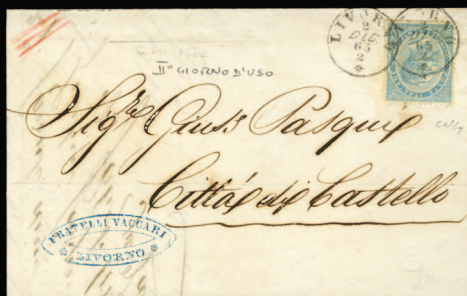 LIVORNO
2
DIC
65
2
II° GIORNO D'USO
Sig.re Gius.e Pasqui
Città di Castello
FRATELLI VACCARI
LIVORNO